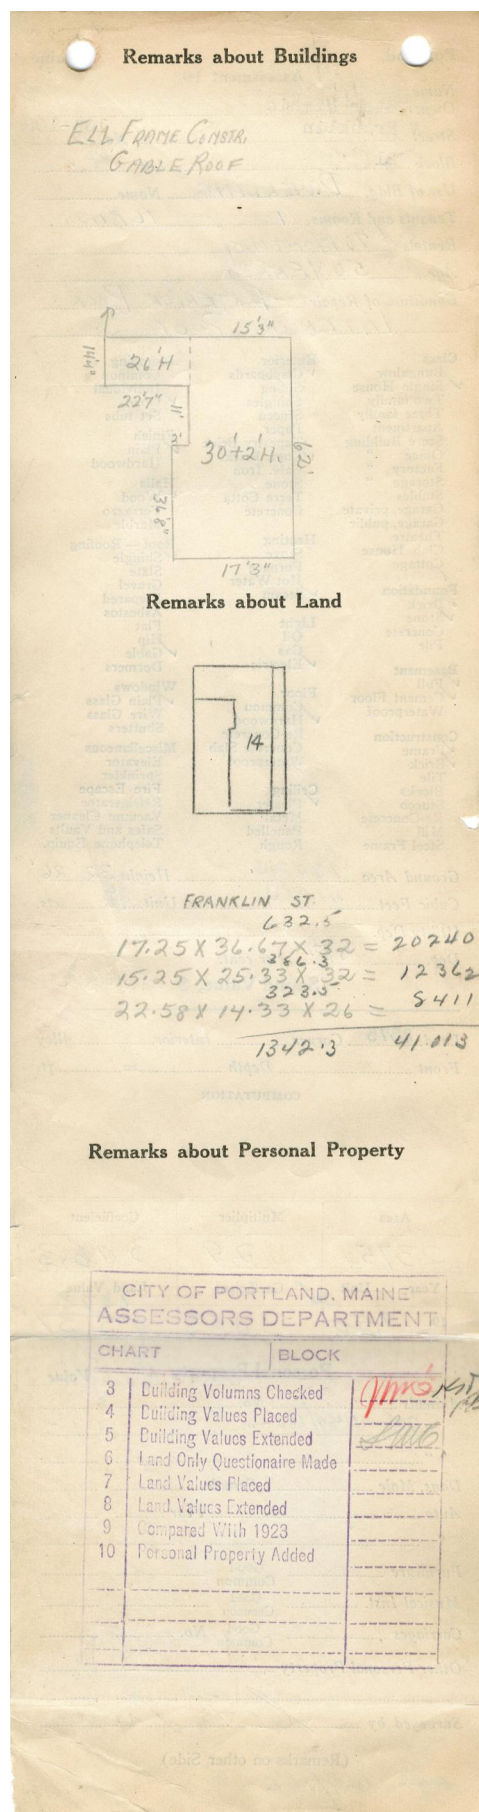 Remarks about Buildings
ELL FRAME CONSTR.
GABLE ROOF
15'3"
14'4"
26'H
22'7"
11'
2'
30'+2'H.
62'
36'8"
17'3"
Remarks about Land
14
FRANKLIN ST
632.5
17.25 X 36.67 X 32 = 20240
386.3
15.25 X 25.33 X 32 = 12362
323.5
22.58 X 14.33 X 26 = 8411
1342.3 41013
Remarks about Personal Property
CITY OF PORTLAND, MAINE
ASSESSORS DEPARTMENT
CHART BLOCK
3 Building Volumns Checked
4 Building Values Placed
5 Building Values Extended
6 Land Only Questionaire Made
7 Land Values Placed
8 Land Values Extended
9 Compared With 1923
10 Personal Property Added